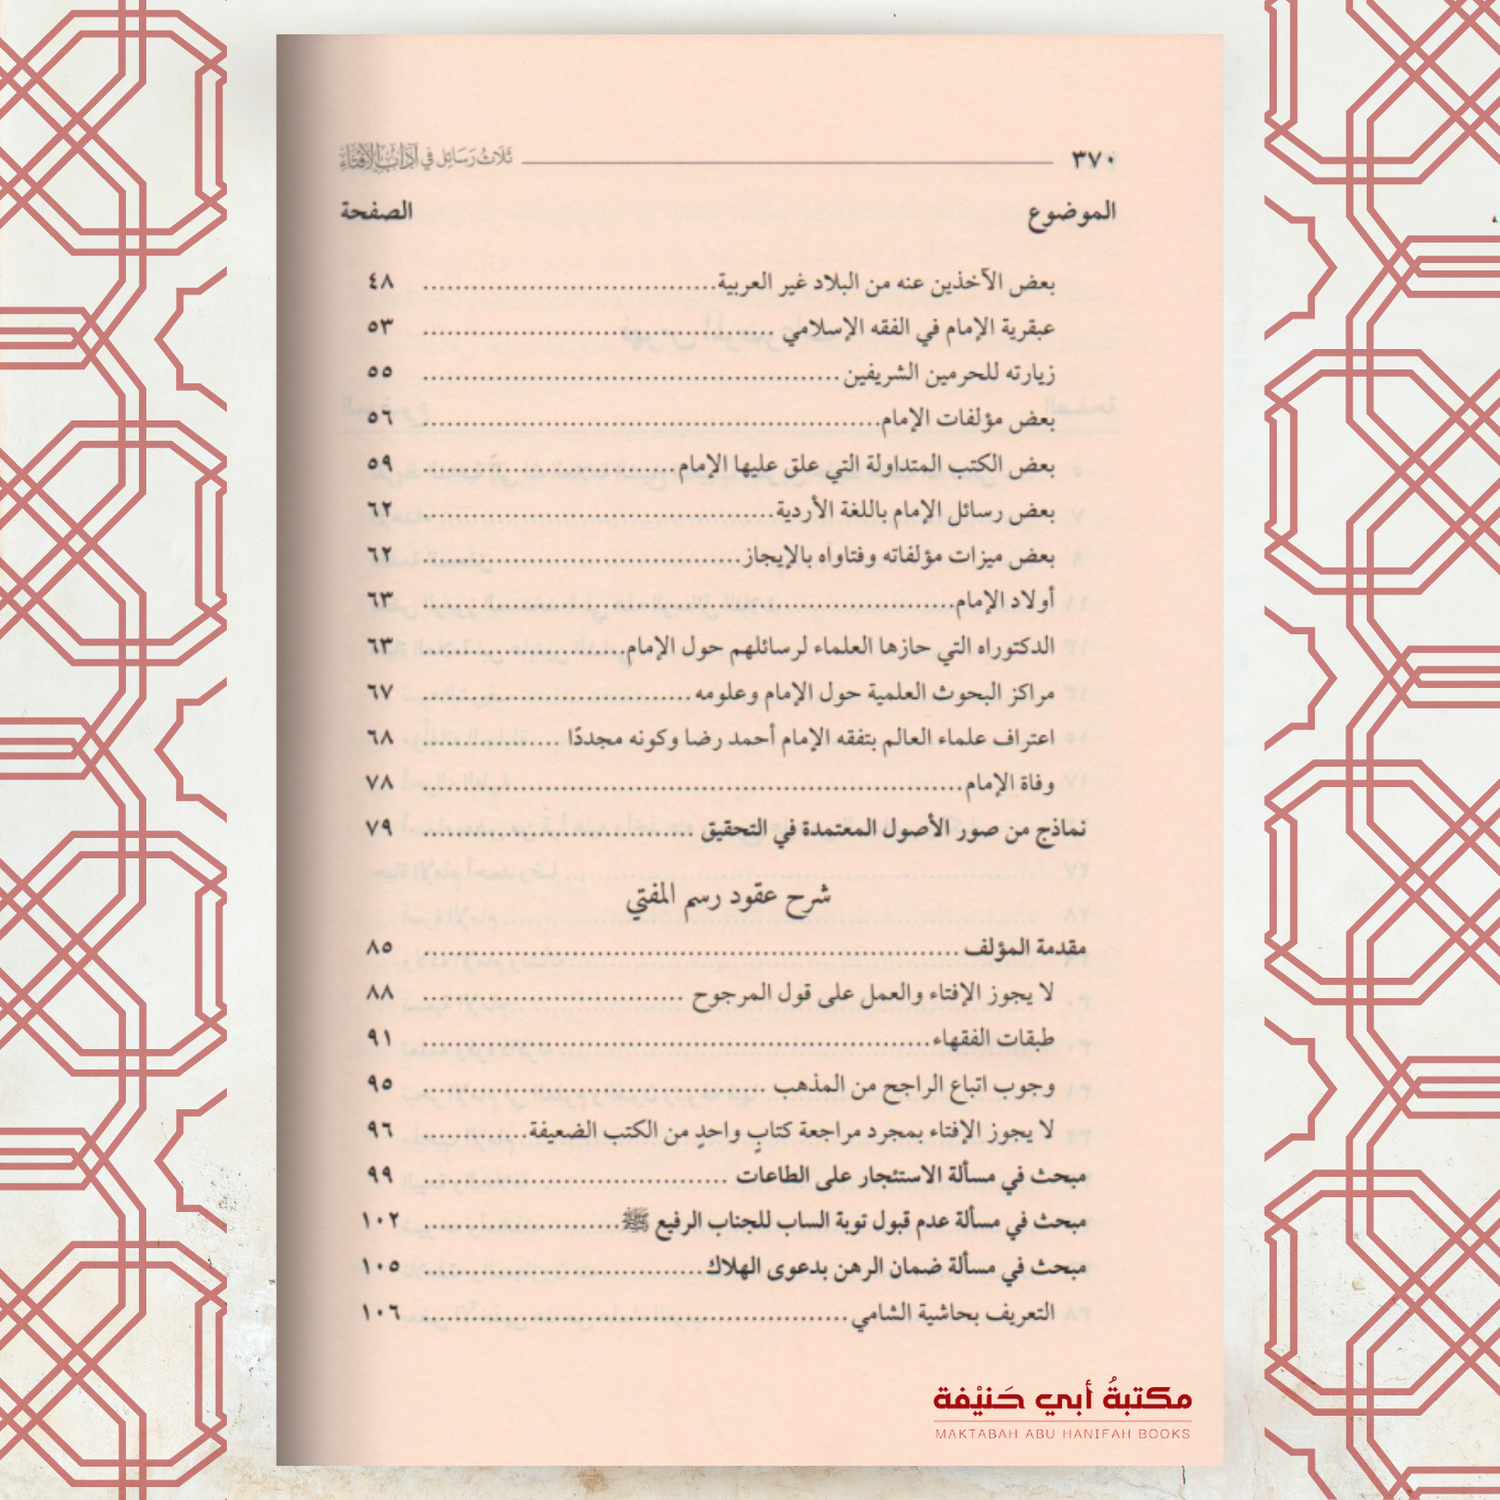 ٣٧٠ ثَلَاثُ رَسَائِل فِي آدَابُ الإِفْتَاءِ
الموضوع الصفحة
بعض الآخذين عنه من البلاد غير العربية ٤٨
عبقرية الإمام في الفقه الإسلامي ٥٣
زيارته للحرمين الشريفين ٥٥
بعض مؤلفات الإمام ٥٦
بعض الكتب المتداولة التي علق عليها الإمام ٥٩
بعض رسائل الإمام باللغة الأردية ٦٢
بعض ميزات مؤلفاته وفتاواه بالإيجاز ٦٢
أولاد الإمام ٦٣
الدكتوراه التي حازها العلماء لرسائلهم حول الإمام ٦٣
مراكز البحوث العلمية حول الإمام وعلومه ٦٧
اعتراف علماء العالم بتفقه الإمام أحمد رضا وكونه مجددًا ٦٨
وفاة الإمام ٧٨
نماذج من صور الأصول المعتمدة في التحقيق ٧٩
شرح عقود رسم المفتي
مقدمة المؤلف ٨٥
لا يجوز الإفتاء والعمل على قول المرجوح ٨٨
طبقات الفقهاء ٩١
وجوب اتباع الراجح من المذهب ٩٥
لا يجوز الإفتاء بمجرد مراجعة كتابٍ واحدٍ من الكتب الضعيفة ٩٦
مبحث في مسألة الاستئجار على الطاعات ٩٩
مبحث في مسألة عدم قبول توبة الساب للجناب الرفيع ﷺ ١٠٢
مبحث في مسألة ضمان الرهن بدعوى الهلاك ١٠٥
التعريف بحاشية الشامي ١٠٦
مكتبةُ أبي حَنيْفة
MAKTABAH ABU HANIFAH BOOKS